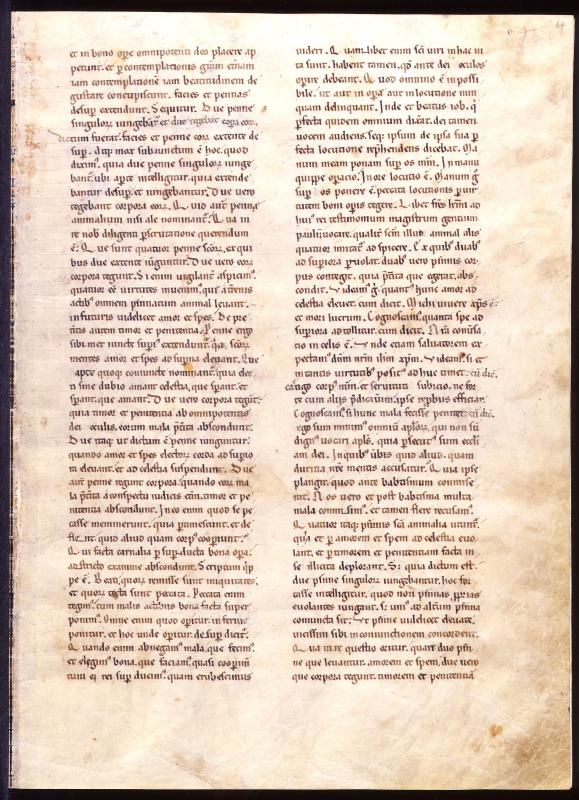 64
et in bono ope omnipotenti deo placere ap
petunt. et p contemplationis gram etiam
iam contemplatione iam beatitudinem de
gustare concupiscunt. facies et pennas
desup extendunt. Sequitur. Due penne
singulorū iungebant et due tegebant corpa eorū.
dictum fuerat. facies et penne eorū extente de
sup. atq; mox subiunctum ē hoc. quod
diximꝰ. quia due penne singulorū iunge
bant. ubi apte intelligitur. quia extende
bantur desup. et iungebantur. Due uero
tegebant corpora eorū. Quid aut penna
animalium nisi ale nominant. Qua in
re nob diligenti pscrutatione querendum
ē. Que sunt quatuor penne scorū. ex qui
bus due extente iunguntur. Due uero eorū
corpora tegunt. Si enim uigilant aspicimꝰ.
quatuor eē uirtutes inuenimꝰ. que a terrenis
actibꝰ omnem pennatum animal leuant.
in futuris uidelicet amor et spes. De pre
titis autem timor et penitentia. Penne ergo
sibimet iuncte sup extendunt. qa scorū
mentes amor et spes ad supna eleuant. Que
apte quoq; coniuncte nominant. quia elec
ti sine dubio amant celestia. que sperant. et
sperant. que amant. Due uero corpora tegunt.
quia timor et penitentia ab omnipotentis
dei oculis eorum mala ptita abscondunt.
Due itaq; ut dictum ē penne iunguntur.
quando amor et spes electorū corda ad supio
ra eleuant. et ad celestia suspendunt. Due
aut penne tegunt corpora. quando eorū ma
la ptita a conspectu iudicis etni. timor et pe
nitentia abscondunt. In eo enim quod se pec
casse meminerunt. quia ptimescunt. et de
flent. quid aliud quam corpꝰ coopiunt.
Qui facta carnalia p supducta bona opa.
a districto examine abscondunt. Scriptum qpp
pe ē. Beati. quorū remisse sunt iniquitates.
et quorū tecta sunt peccata. Peccata enim
tegimꝰ. cum malis actibus bona facta super
ponimꝰ. Omne enim quod opitur. inferius
ponitur. et hoc unde opitur. desup dicit.
Quando enim abnegamꝰ mala. que fecimꝰ.
et elegimꝰ bona. que faciamꝰ. quasi coopimen
tum ei rei sup ducimꝰ. quam erubescimus
uideri. Quamlibet enim sci uiri in hac ui
ta sunt. habent tamen. que ante dei oculos
opire debeant. Quod omnino ē inpossi
bile. ut aut in opa aut in locutione nun
quam delinquant. Inde et beatus iob. q
pfecta quidem omnium dixat. dei tamen
uocem audiens. seq; ipsum de ipsa sua p
fecta locutione rephendens dicebat. Ma
num meam ponam sup os mm. In manu
quippe opacio. In ore locutio ē. Manum g
sup os ponere ē. peccata locutionis p uir
tutem boni opis tegere. Libet fres krmi ad
huiꝰ rei testimonium magistrum gentium
paulū uocare. qualit sem illius animal alis
quatuor innitat adspicere. Ex quibꝰ duabꝰ
ad supiora puolat. duabꝰ uero pennis cor
pus contegit. quia ptita que egerat. abs
condit. Videamꝰ g. quant hunc amor ad
celestia eleuet. cum dicit. Michi uiuere xps ē.
et mori lucrum. Cognoscamꝰ. quanta spe ad
supiora adtollitur. cum dicit. Nra conuersa
tio in celis ē. Unde etiam saluatorem ex
pectamꝰ dnm nrm ihm xpm. Videamꝰ. si et
in tantis uirtutibꝰ positꝰ adhuc timet. cū dic.
castigo corpꝰ mm. et seruituti subicio. ne for
te cum aliis pdicauim. ipse repbus efficiar.
Cognoscamꝰ. si hunc mala fecisse penitet. cū dic.
ego sum minim omniū aplorū. qui non sū
dignꝰ uocari aplꝰ. quia psecutꝰ sum eccli
am dei. In quibꝰ ubiis quid aliud. quam
duritia nre mentis accusatur. Quia ipse
plangit. quod ante babtismum commise
rat. Nos uero et post babtisma multa
mala commisimꝰ. et tamen flere recusamꝰ.
Quatuor itaq; pennis sca animalia utunt.
quia et p amorem et spem ad celestia euo
lant. et p timorem et penitentiam facta in
se illicita deplorant. Si quia dictum est.
due penne singulorū iungebantur. hoc for
tasse intelligitur. quod non pennas pprias
euolantes iungant. si unius ad alterum penna
coniuncta sit. Ut penne uidelicet eleuate.
uicissim sibi in coniunctionem concordent.
Qua in re questio oritur. quare duo pen
ne que leuantur. amorem et spem. due uero
que corpora tegunt. timorem et penitentiā